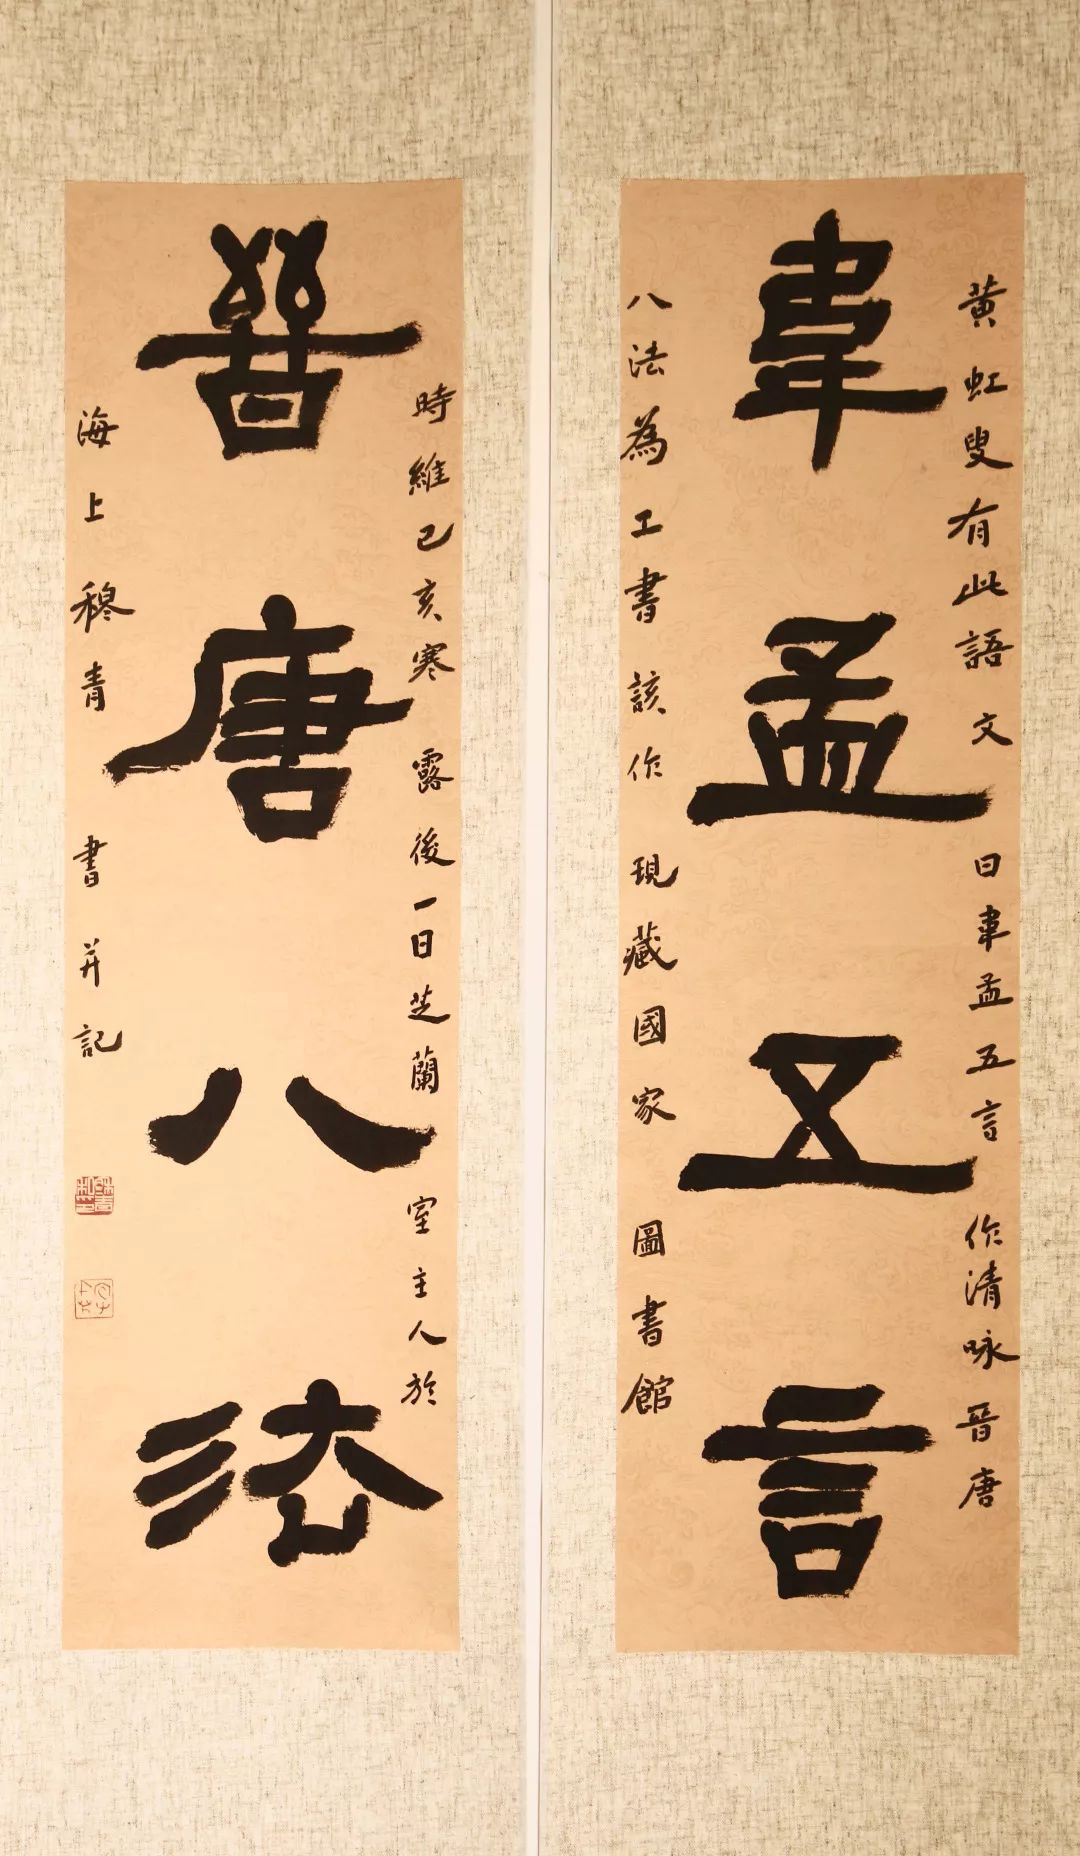 韋孟五言
黃虹叟有此語文曰韋孟五言作清咏晉唐
八法為工書該作現藏國家圖書館
晉唐八法
時維己亥寒露後一日芝蘭室主人於
海上穆青書并記